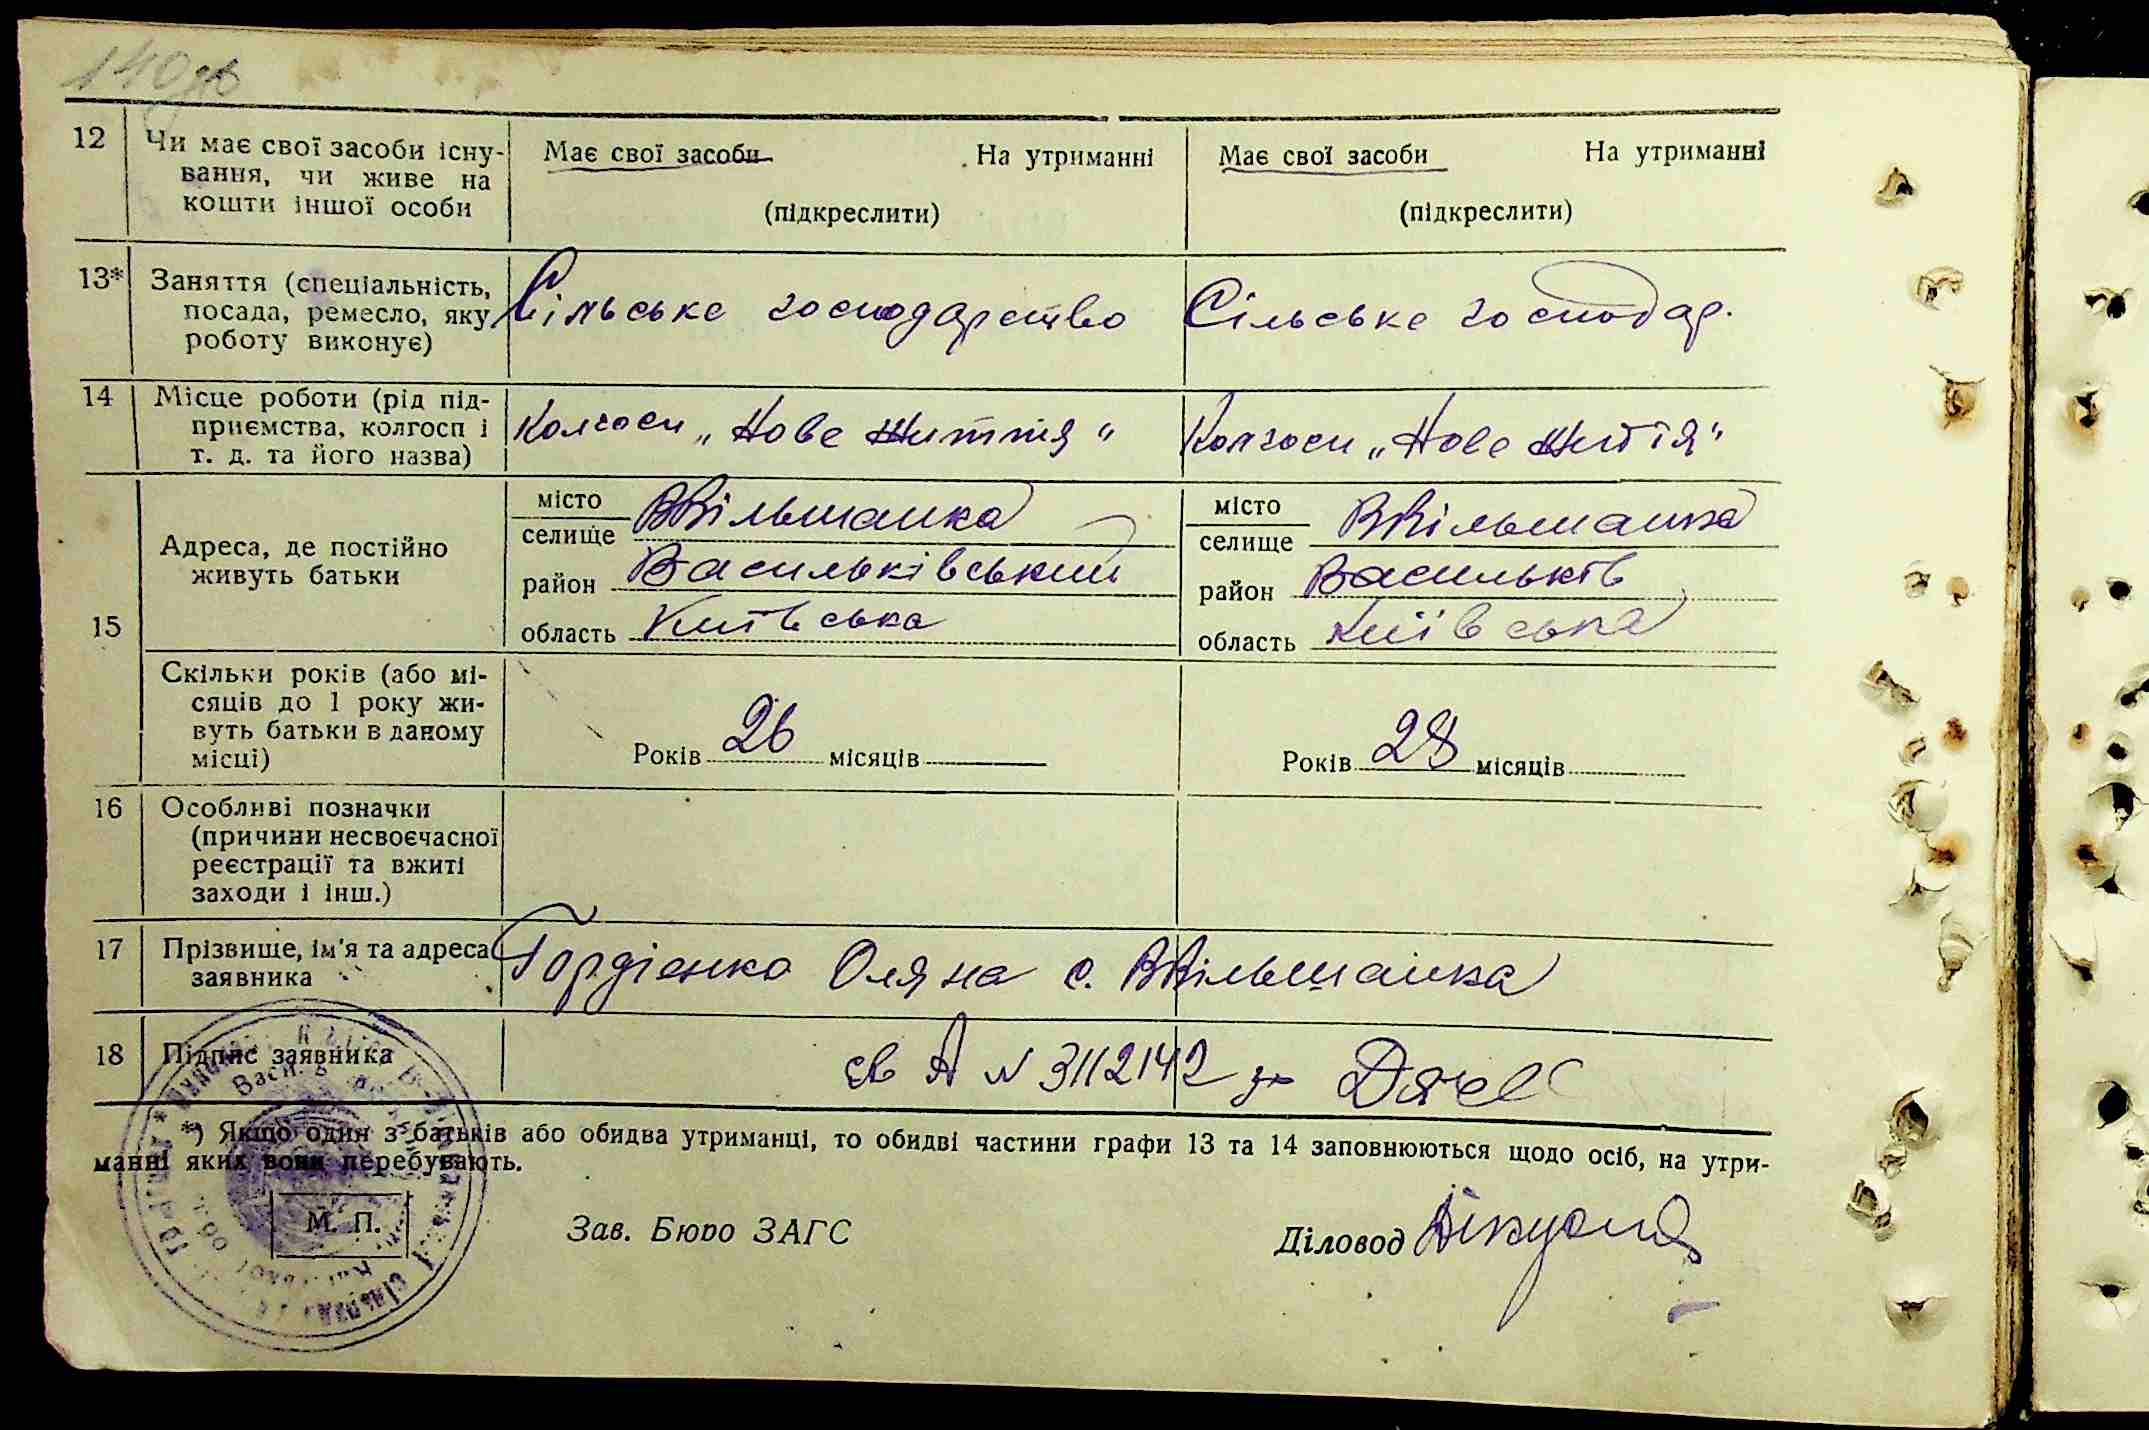 140
12 Чи має свої засоби існу- Має свої засоби На утриманні Має свої засоби На утриманні
вання, чи живе на
кошти іншої особи (підкреслити) (підкреслити)
13* Заняття (спеціальність,
посада, ремесло, яку Сільське господарство Сільське господар.
роботу виконує)
14 Місце роботи (рід під-
приємства, колгосп і Колгосп „Нове Життя“ Колгосп „Нове Життя“
т. д. та його назва)
15 Адреса, де постійно
живуть батьки
місто ВВільшанка місто ВВільшанка
селище селище
район Васильківський район Васильків
область Київська область Київська
Скільки років (або мі-
сяців до 1 року жи-
вуть батьки в даному
місці) Років 26 місяців Років 28 місяців
16 Особливі позначки
(причини несвоєчасної
реєстрації та вжиті
заходи і інш.)
17 Прізвище, ім'я та адреса
заявника Гордієнко Оляна с. ВВільшанка
18 Підпис заявника св А N 3112142
*) Якщо один з батьків або обидва утриманці, то обидві частини графи 13 та 14 заповнюються щодо осіб, на утри-
манні яких вони перебувають.
М. П. Зав. Бюро ЗАГС Діловод